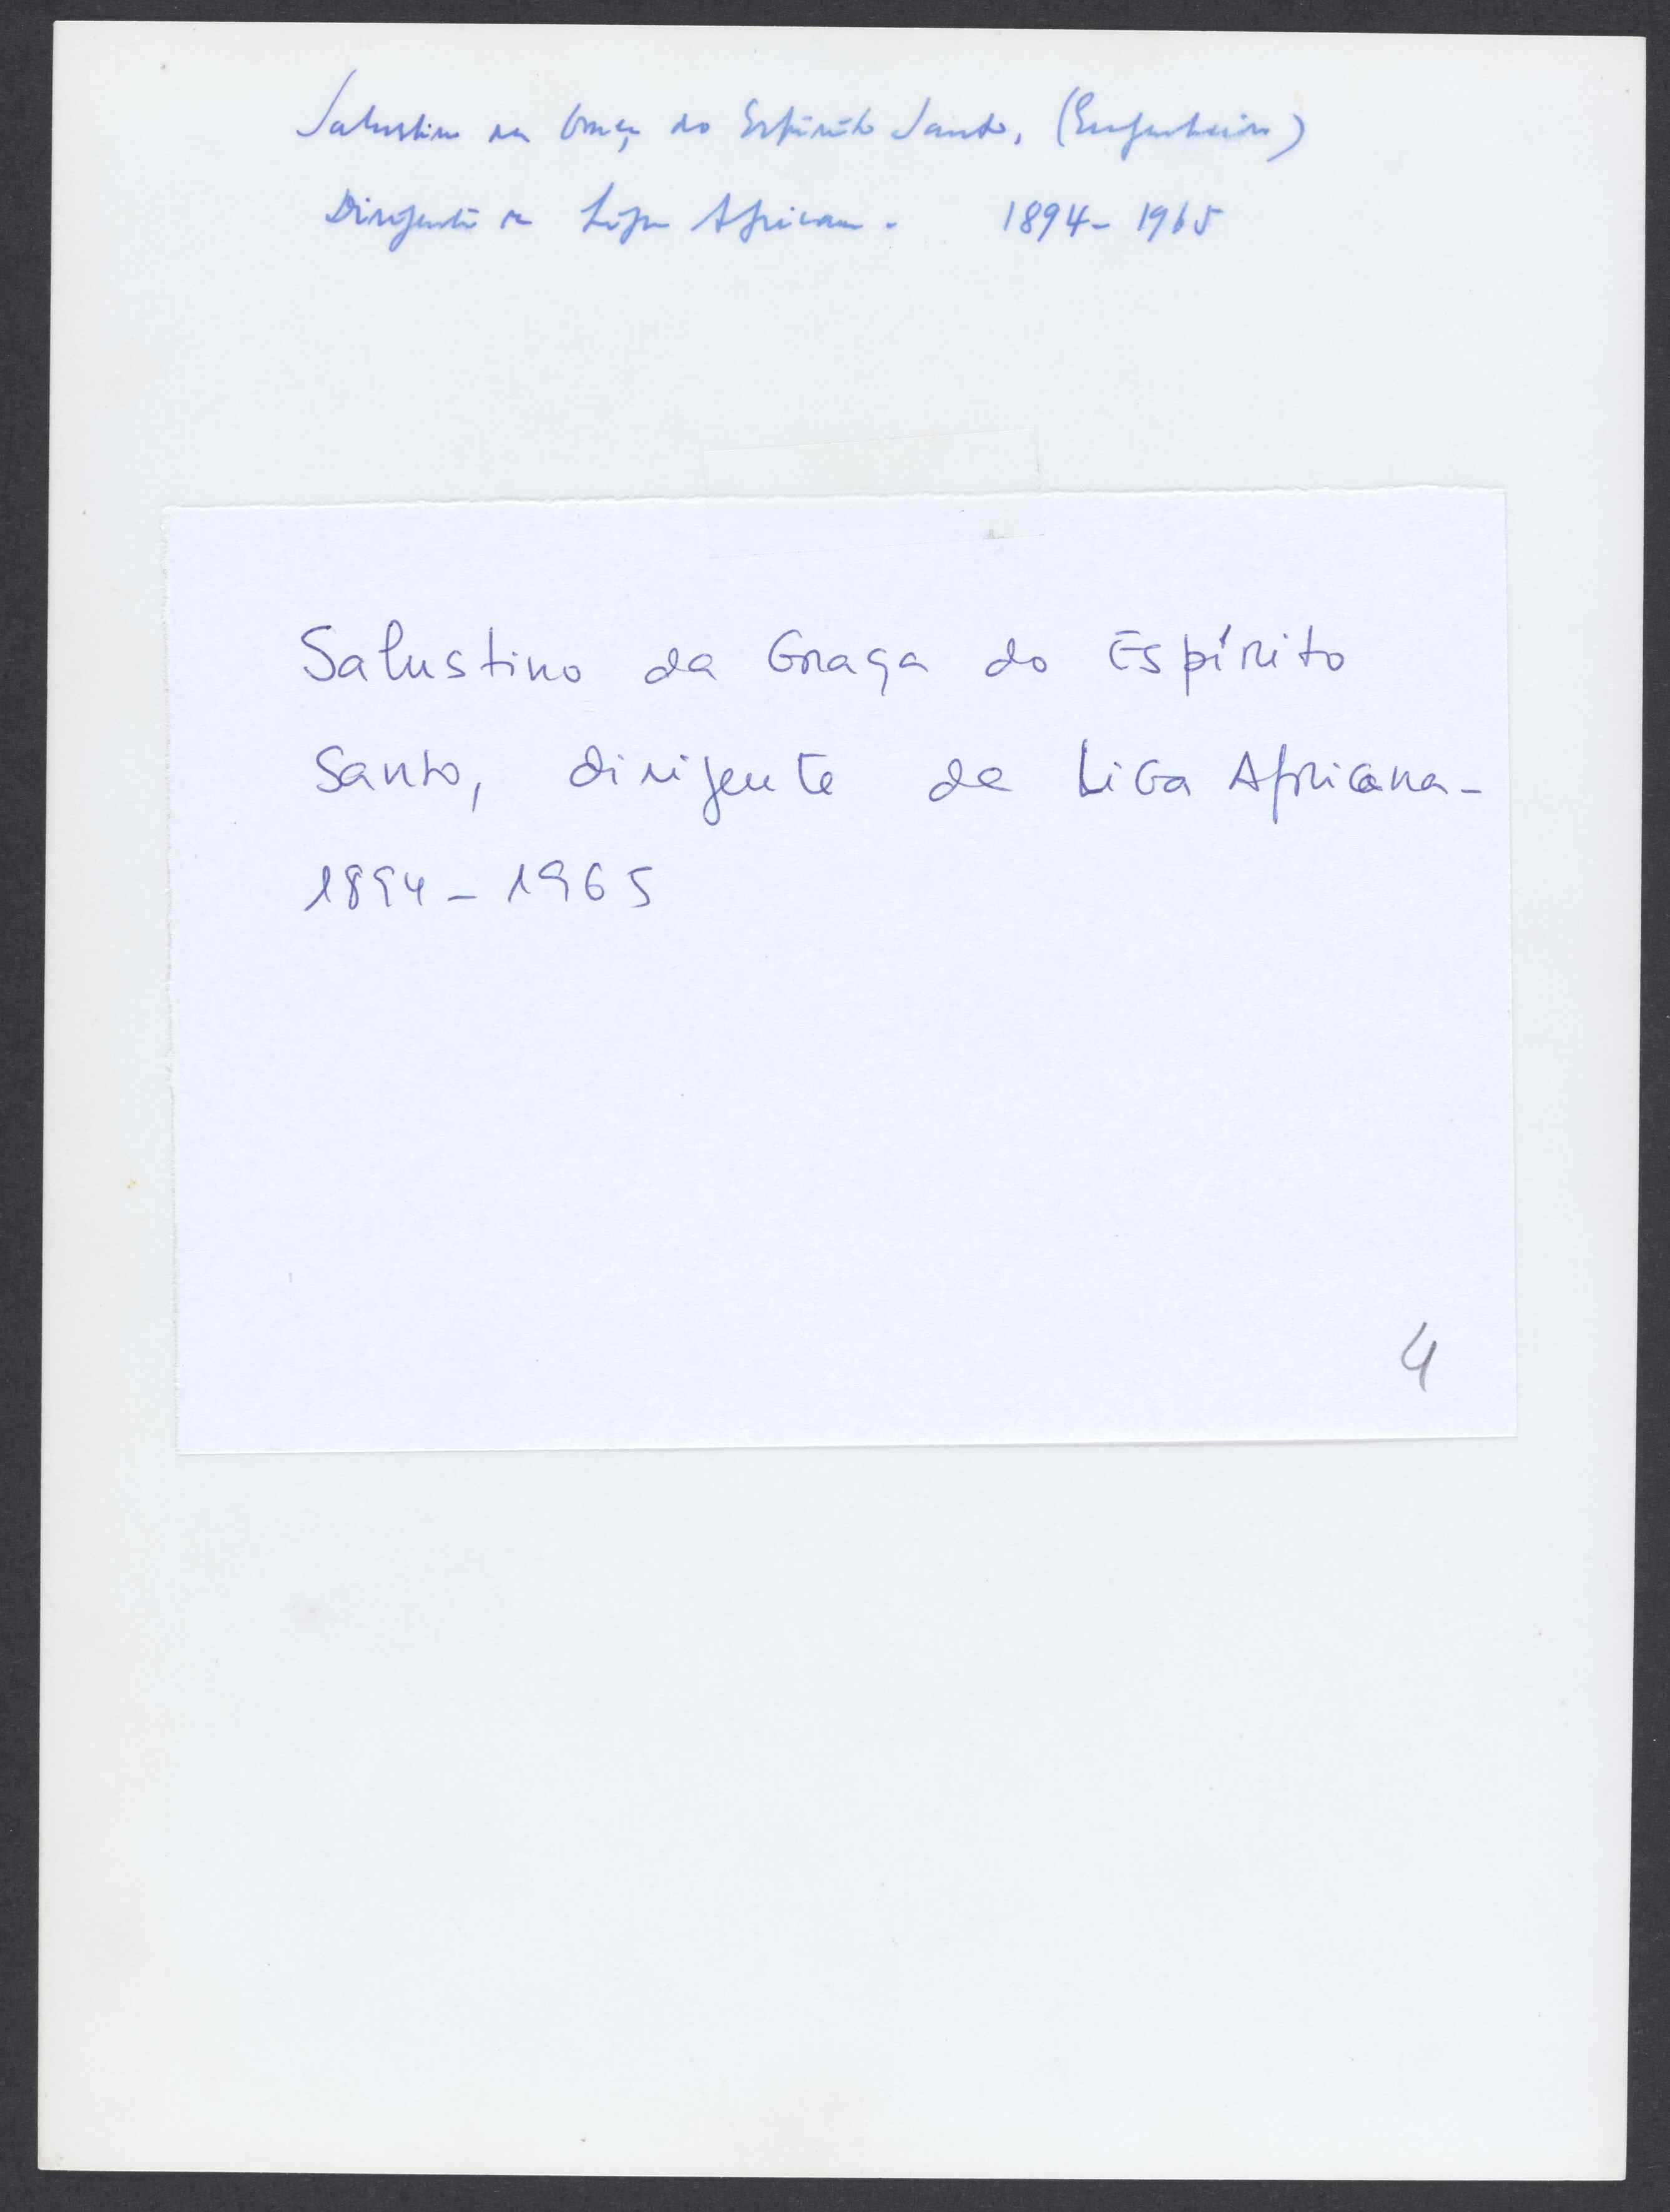 Salustino da Graça do Espírito Santo, (Engenheiro)
Dirigente da Liga Africana. 1894-1965
Salustino da Graça do Espírito
Santo, dirigente da Liga Africana-
1894-1965
4